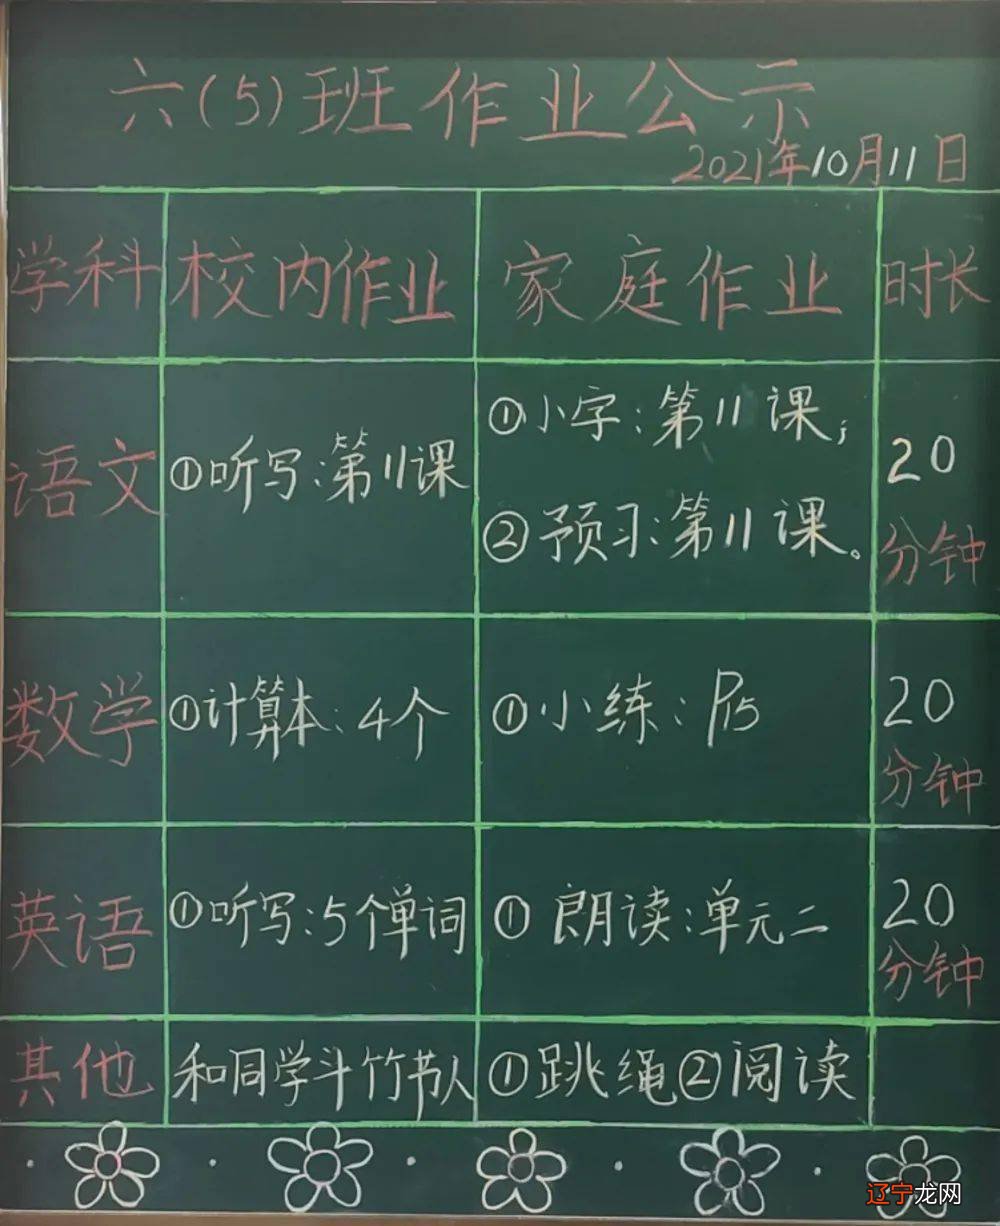 六(5)班作业公示
2021年10月11日
学科 校内作业 家庭作业 时长
语文 ①听写:第11课 ①小字:第11课;
②预习:第11课。
20
分钟
数学 ①计算本:4个 ①小练:P15 20
分钟
英语 ①听写:5个单词 ①朗读:单元二 20
分钟
其他 和同学斗竹节人 ①跳绳②阅读
辽宁龙网